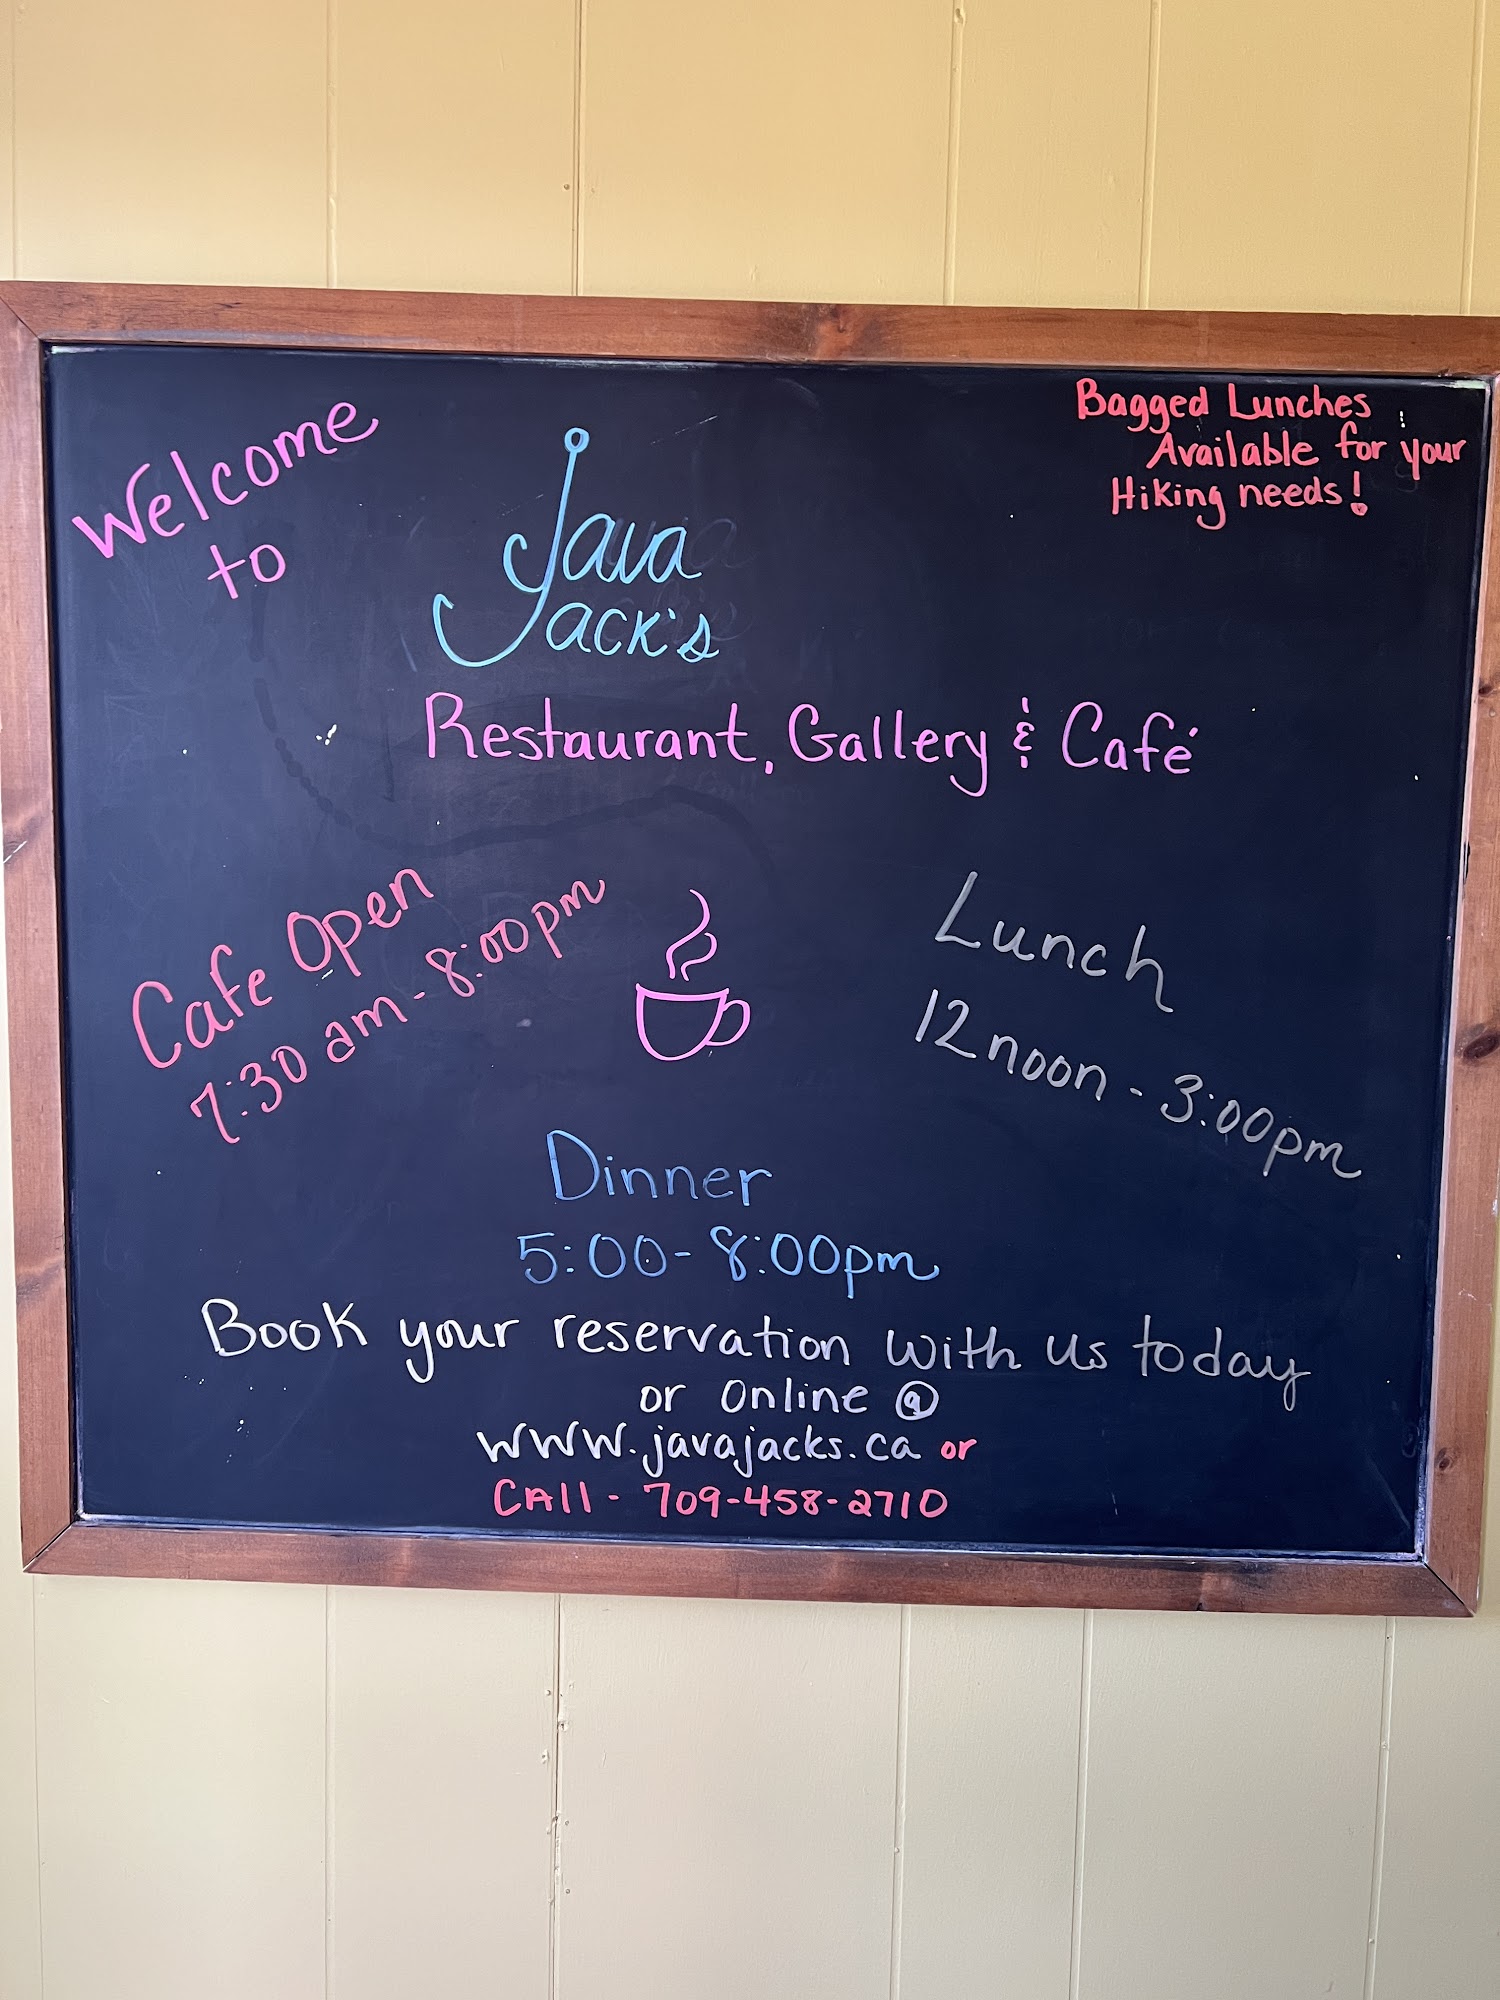 Welcome
to
Java
Jack's
Bagged Lunches
Available for your
Hiking needs!
Restaurant, Gallery & Café
Cafe Open
7:30 am - 8:00pm
Lunch
12 noon - 3:00pm
Dinner
5:00 - 8:00pm
Book your reservation with us today
or Online @
www.javajacks.ca or
CAll - 709-458-2710